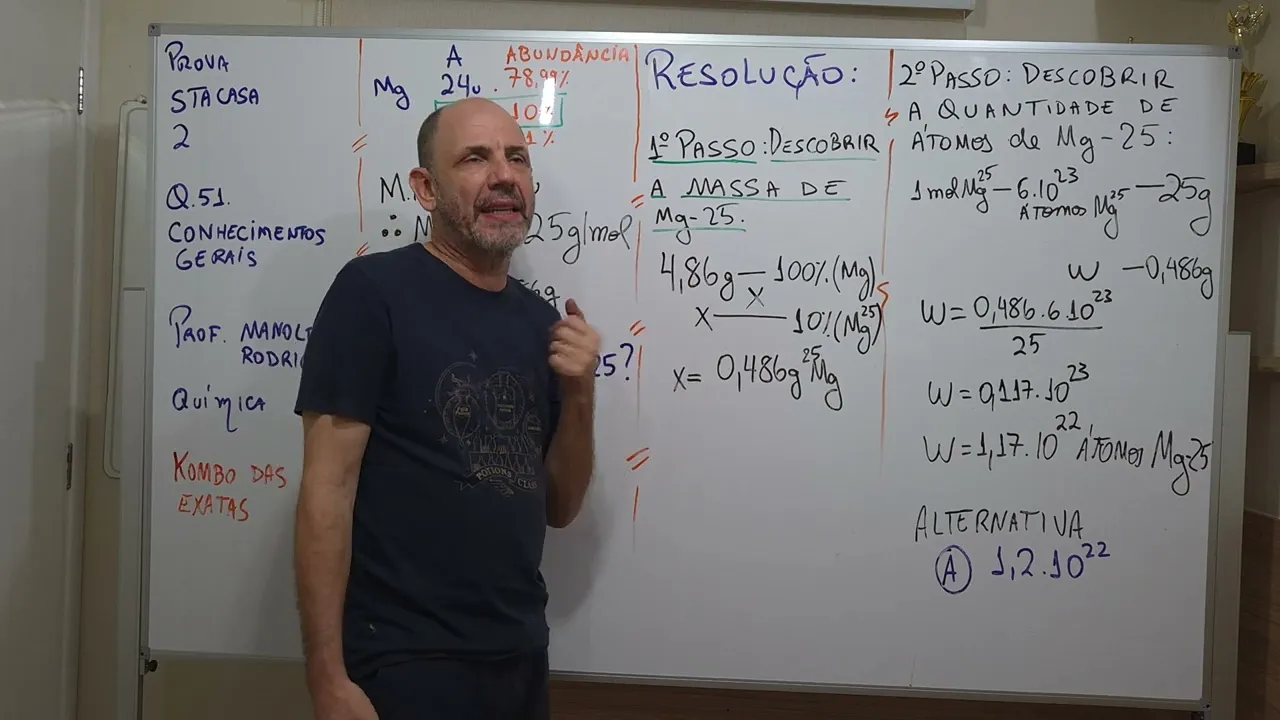 PROVA
STA CASA
2
Q.51.
CONHECIMENTOS
GERAIS
PROF.
QUÍMICA
KOMBO DAS
EXATAS
A ABUNDÂNCIA
Mg 24u . 78,99%
10%
1%
M.
∴ M 25g/mol
6g
25?
RESOLUÇÃO:
1º PASSO: DESCOBRIR
A MASSA DE
Mg-25.
4,86g — 100% (Mg)
X
X — 10% (Mg²⁵)
X = 0,486g ²⁵Mg
2º PASSO: DESCOBRIR
A QUANTIDADE DE
ÁTOMOS de Mg-25:
1mol Mg²⁵ — 6.10²³ — 25g
ÁTOMOS Mg²⁵
W — 0,486g
W = 0,486.6 10²³
25
W = 0,117.10²³
W = 1,17.10²² ÁTOMOS Mg-25
ALTERNATIVA
A 1,2.10²²
POTIONS CLASS